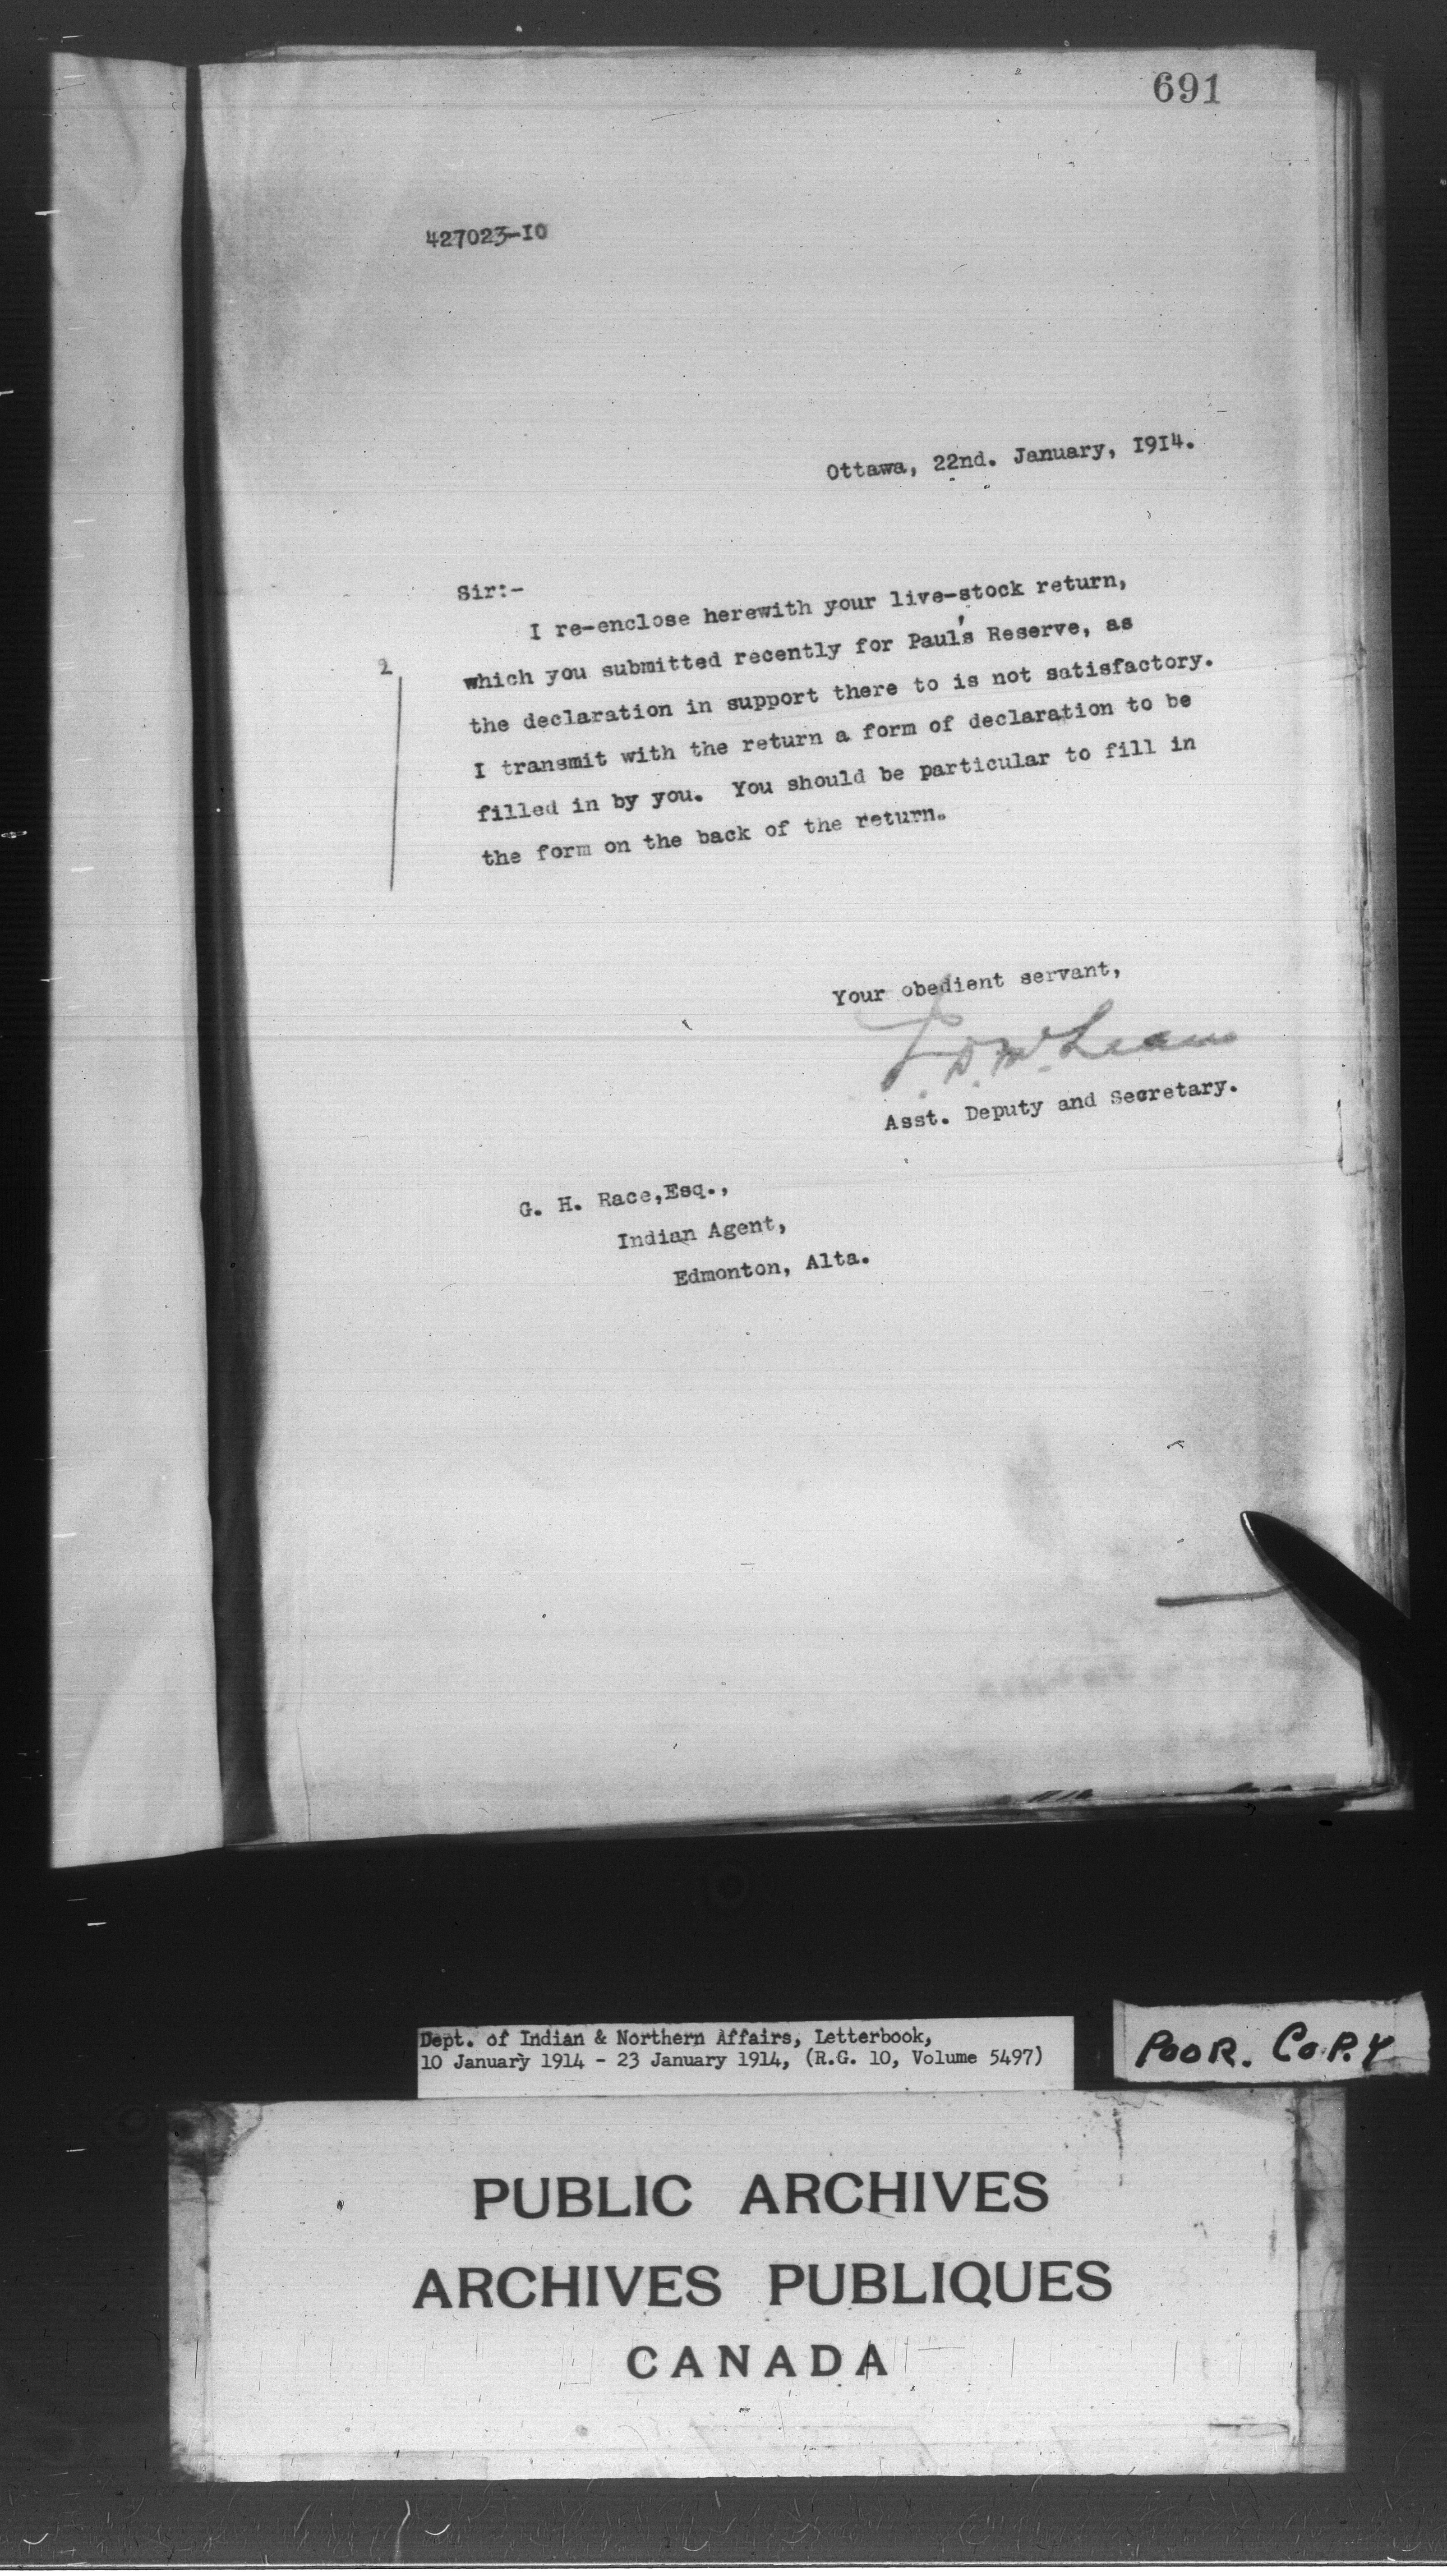 691
427023-10
Ottawa, 22nd. January, 1914.
Sir:-
I re-enclose herewith your live-stock return,
2 which you submitted recently for Paul's Reserve, as
the declaration in support there to is not satisfactory.
I transmit with the return a form of declaration to be
filled in by you. You should be particular to fill in
the form on the back of the return.
Your obedient servant,
J. D. McLean
Asst. Deputy and Secretary.
G. H. Race,Esq.,
Indian Agent,
Edmonton, Alta.
Dept. of Indian & Northern Affairs, Letterbook,
10 January 1914 - 23 January 1914, (R.G. 10, Volume 5497)
POOR. COPY
PUBLIC ARCHIVES
ARCHIVES PUBLIQUES
CANADA